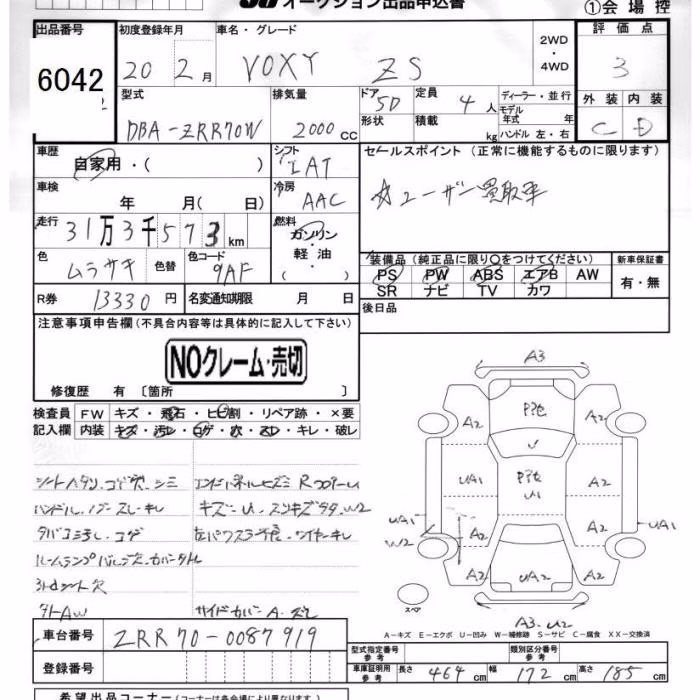 オークション出品申込書
①会場控
出品番号
6042
初度登録年月
20年2月
車名・グレード
VOXY ZS
2WD
・
4WD
評価点
3
外装 内装
C D
型式
DBA-ZRR70W
排気量
2000cc
ドア
5D
形状
定員
4人
積載
kg
ディーラー・並行
モデル
年式 年
ハンドル 左・右
車歴
自家用・( )
シフト
IAT
車検
年 月( 日)
冷房
AAC
走行
31万3千573km
燃料
ガソリン
軽油
( )
色
ムラサキ
色替
色コード
9AF
R券
13330円
名変通知期限 月 日
セールスポイント(正常に機能するものに限ります)
☆ユーザー買取車
装備品(純正品に限り○をつけてください)
PS PW ABS エアB AW
SR ナビ TV カワ
新車保証書
有・無
後日品
注意事項申告欄(不具合内容等は具体的に記入して下さい)
NOクレーム・売切
修復歴 有〔箇所 〕
検査員 FW キズ・飛石・ヒビ割・リペア跡・×要
記入欄 内装 キズ・汚レ・コゲ・穴・スレ・キレ・破レ
シートヘタリ、コゲ穴、シミ
ハンドル、ノブ スレ・キレ
タバコ
ルームランプ
3rdシート欠
タトAW
サイドカバー A・ズレ
A3
A2
A2
UA1
A2
UA1
W2
U1
UA1
A2
A2
A2
A2
UA2
A3.U2
スペア
A-キズ E-エクボ U-凹み W-補修跡 S-サビ C-腐食 XX-交換済
車台番号
ZRR70-0087919
登録番号
型式指定番号
参考
類別区分番号
参考
車庫証明用
参考
長さ 464cm 幅 172cm 高さ 185cm
希望出品コーナー(コーナーは各会場により異なります)